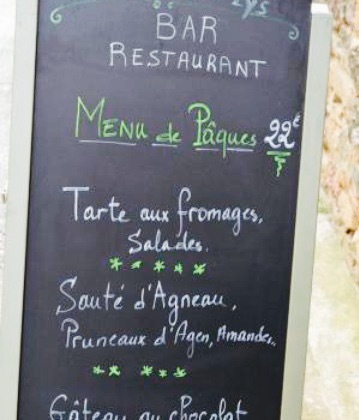 BAR
RESTAURANT
MENU de Pâques 22€
Tarte aux fromages,
Salades.
Sauté d'Agneau,
Pruneaux d'Agen, Amandes.
Gâteau au chocolat